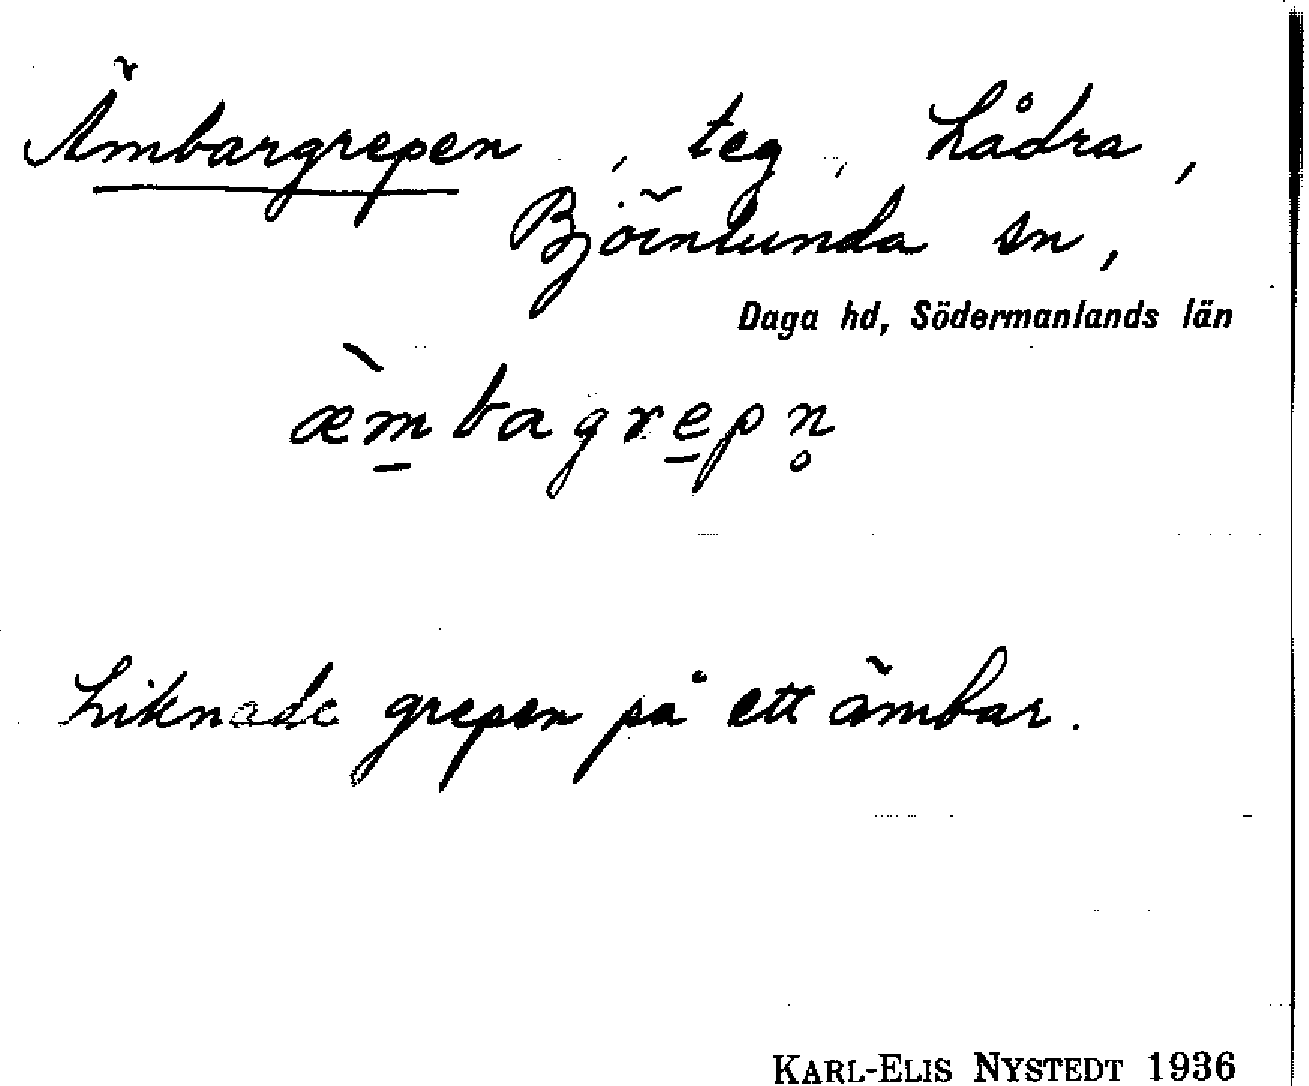 Ämbargrepen, teg, Lådra,
Björnlunda sn,
Daga hd, Södermanlands län
æ̀m̲bagre̲pn̥
Liknade grepen på ett ämbar.
KARL-ELIS NYSTEDT 1936